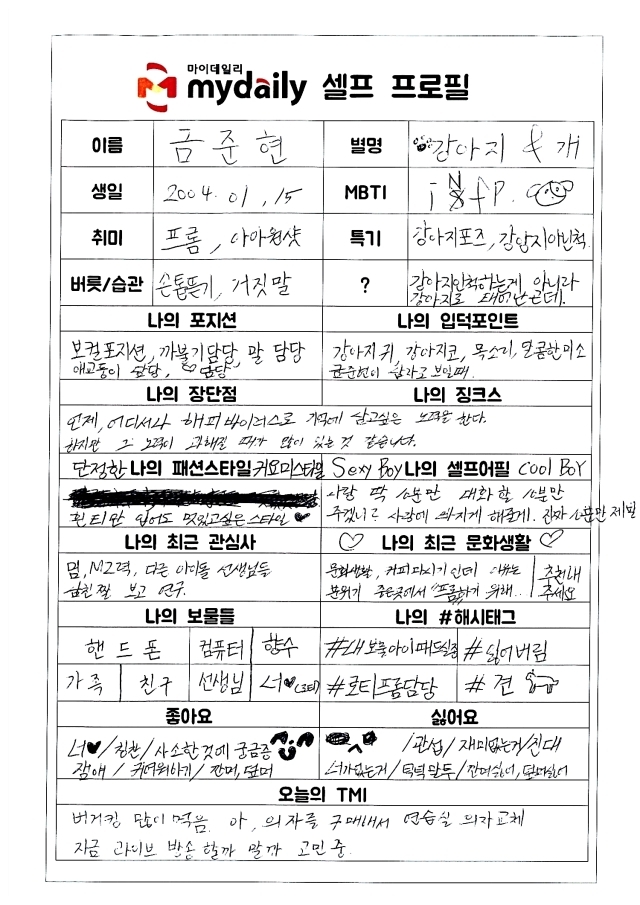 마이데일리
mydaily 셀프 프로필
이름 금준현 별명 강아지 & 개
생일 2004.01.15 MBTI iNfP.
취미 프롬, 아아원샷 특기 강아지포즈, 강아지아닌척.
버릇/습관 손톱뜯기, 거짓말 ? 강아지인척하는게 아니라
강아지로 태어난건데.
나의 포지션 나의 입덕포인트
보컬포지션, 까불기담당, 말 담당 강아지 귀, 강아지코, 목소리, 달콤한미소
애교둥이 담당, ♡담당 금준현이 할라고 보일때.
나의 장단점 나의 징크스
언제, 어디서나 해피바이러스로 기억에 남고싶은 노력을 한다.
하지만 그 노력이 과해질 때가 많이 있는 것 같습니다.
단정한 나의 패션스타일 귀요미스타일 Sexy Boy 나의 셀프어필 Cool BoY
사람 딱 1분만 대화할 1분만
흰티만 입어도 멋있고싶은 스타일 ♥ 주겠니? 사랑에 빠지게 해줄게. 진짜 1분만 제발
나의 최근 관심사 ♡ 나의 최근 문화생활 ♡
밈, MZ력, 다른 아이돌 선생님들 문화생활, 커피마시기인데 이유는 추천해
챌린지 보고 연구. 분위기 좋은곳에서 "프롬"하기 위해.. 주세요
나의 보물들 나의 #해시태그
핸드폰 컴퓨터 향수 #내보물아이패드실종 #싫어버림
가족 친구 선생님 너♥(로티) #로티프롬담당 #견
좋아요 싫어요
너♥/칭찬/사소한것에 궁금증 /관섭/재미없는거/진대
장애/귀여워하기/잔머, 덮머 너가없는거/턱턱말투/잔머싫어, 덮머싫어
오늘의 TMI
버거킹 많이 먹음. 아, 의자를 구매해서 연습실 의자교체
지금 라이브 방송 할까 말까 고민 중.